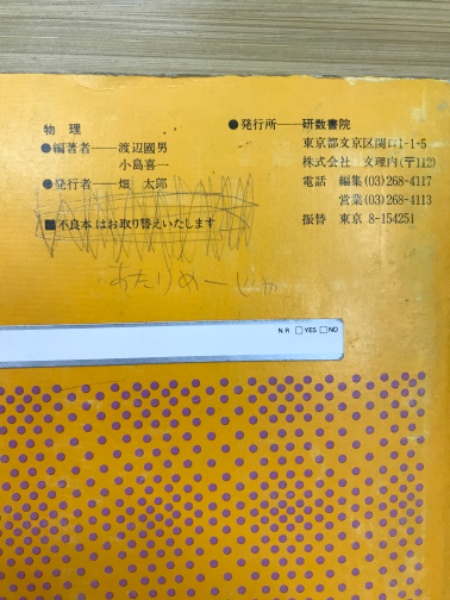 物理
●編著者──渡辺國男
小島喜一
●発行者──畑 太郎
■不良本はお取り替えいたします
●発行所──研数書院
東京都文京区関口1-1-5
株式会社 文理内(〒112)
電話 編集(03)268-4117
営業(03)268-4113
振替 東京 8-154251
あたりめーじゃ
NR □YES □NO